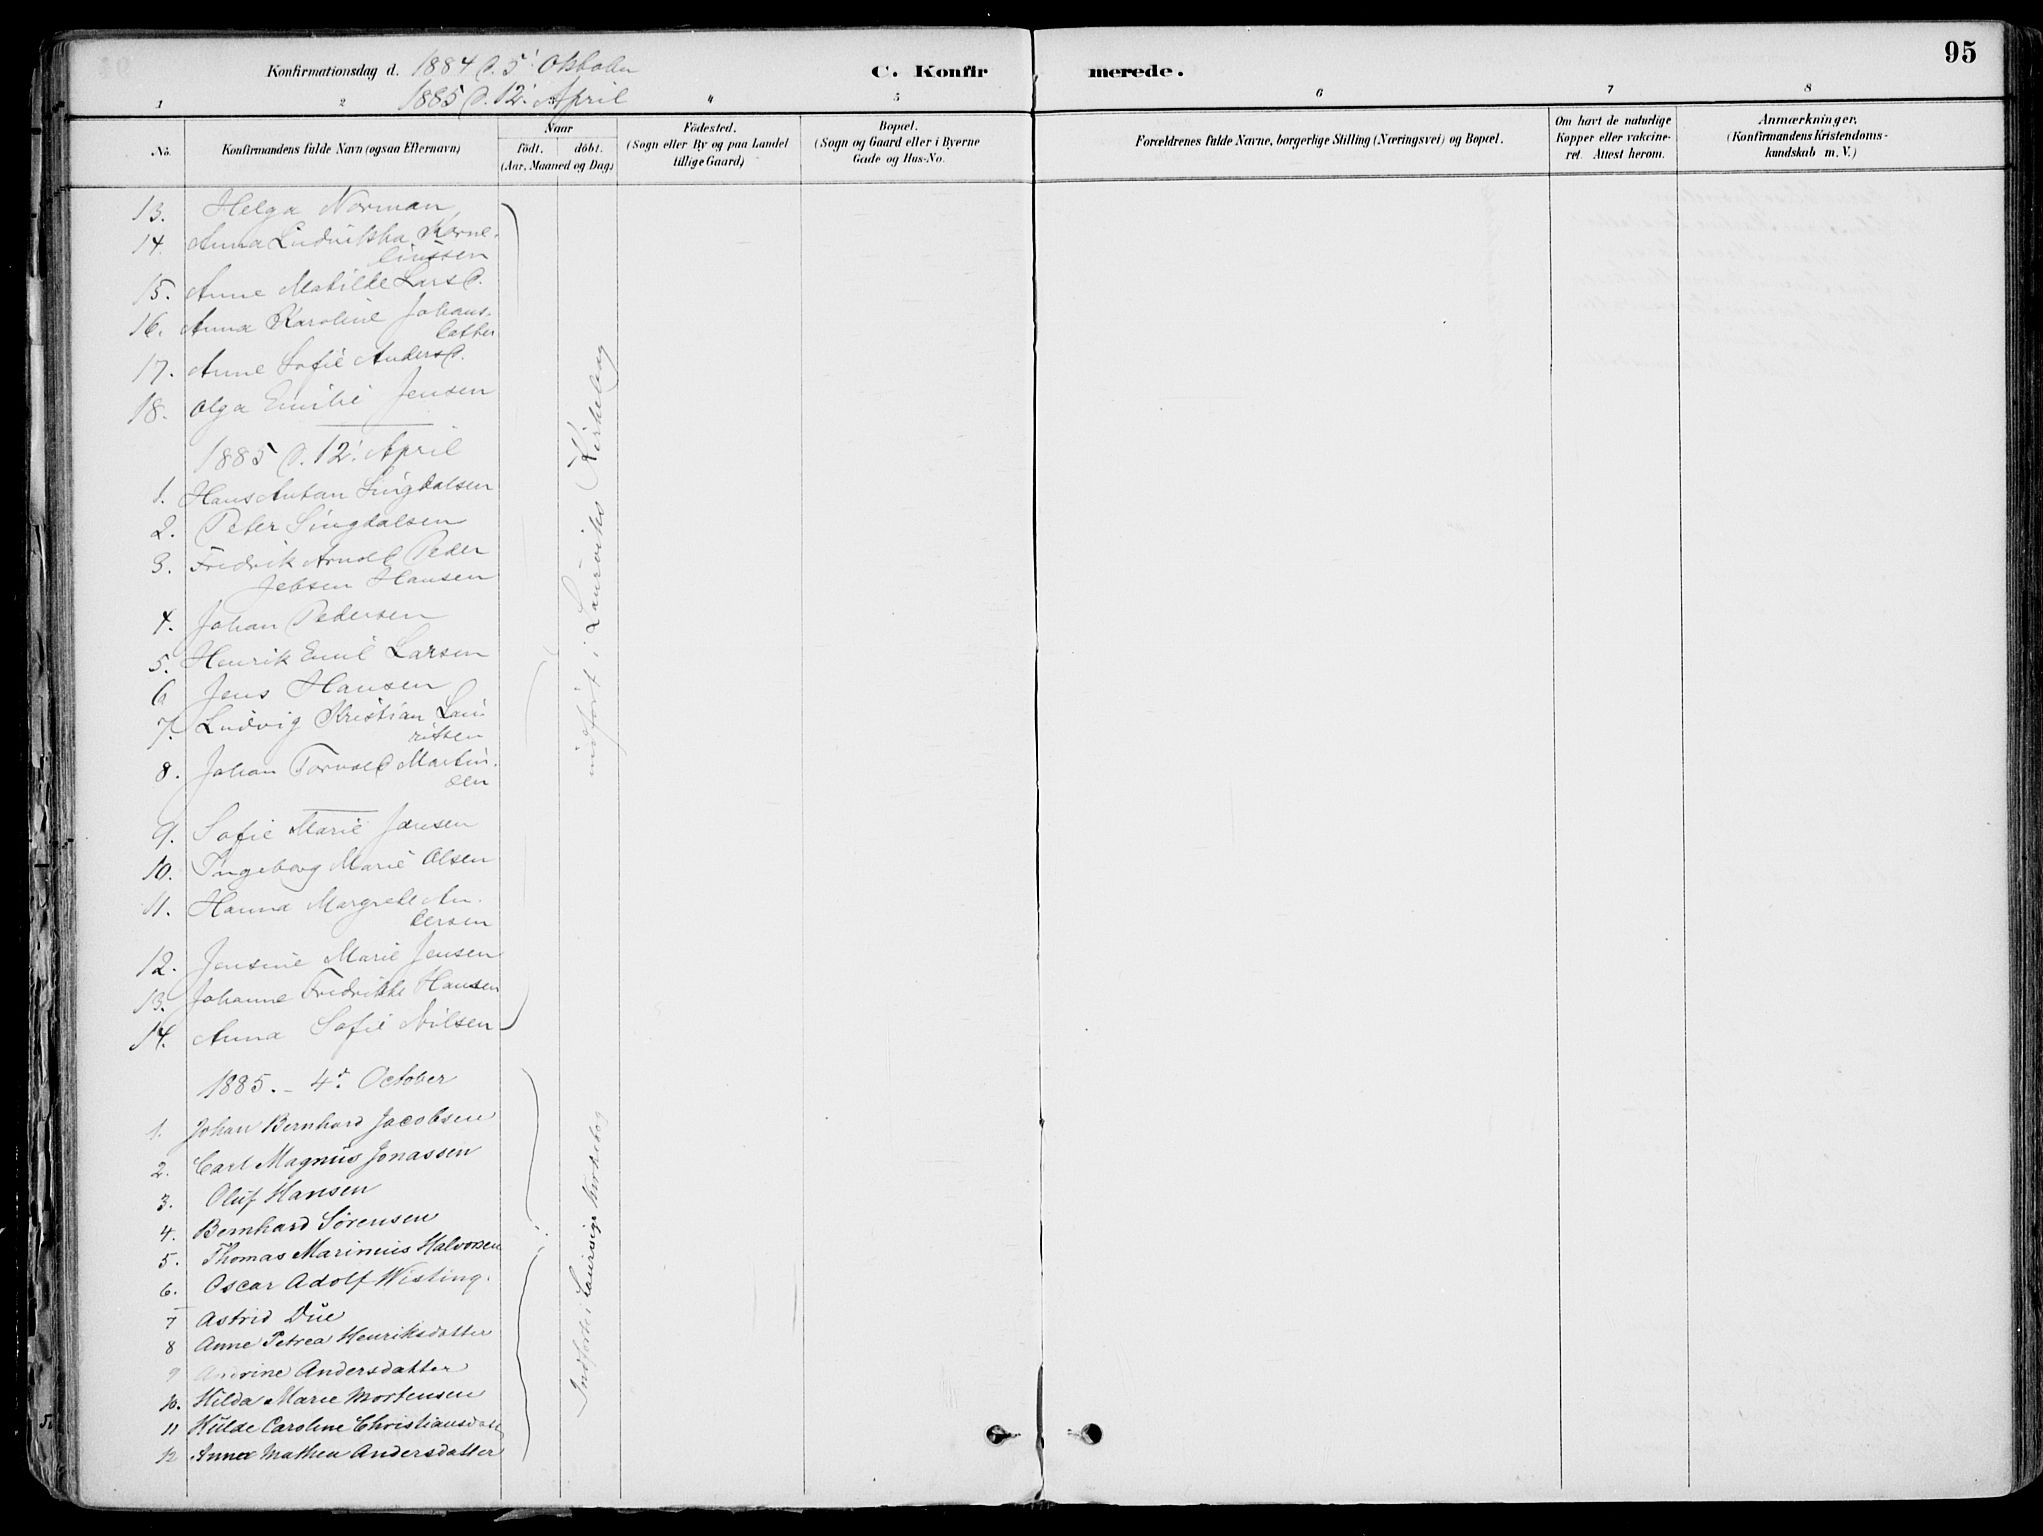 95
Konfirmationsdag d. 1884 d. 5' Oktober
C. Konfirmerede.
1885 d. 12' April
1 2 4 5 6 7 8
No. Konfirmandens fulde Navn (ogsaa Efternavn)
Naar
födt. döbt.
(Aar, Maaned og Dag)
Födested.
(Sogn eller By og paa Landet
tillige Gaard)
Bopæl.
(Sogn og Gaard eller i Byerne
Gade og Hus-No.
Forældrenes fulde Navne, borgerlige Stilling (Næringsvei) og Bopæl.
Om havt de naturlige
Kopper eller vakcine-
ret. Attest herom.
Anmærkninger.
(Konfirmandens Kristendoms-
kundskab m. V.)
13. Helga Norman
14. Anna Ludvikka Korne-
liussen
15. Anne Matilde Larsd.
16. Anna Karoline Johans-
datter
17. Anne Sofie Andersd.
18. Olga Emilie Jensen
1885 d. 12' April
1. Hans Anton Lingdalsen
2. Peter Lingdalsen
3. Fredrik Arnold Peder
Jebsen Hansen
4. Johan Pedersen
5. Henrik Emil Larsen
6 Jens Hansen
7. Ludvig Kristian Lau-
ritsen
8. Johan Torvald Martin-
sen
indført i Laurviks Kirkebog
9. Sofie Marie Jansen
10. Ingeborg Marie Olsen
11. Hanna Margrete An-
dersen
12. Jensine Marie Jensen
13. Johanne Fredrikke Hansen
14. Anna Sofie Nilsen
1885. - 4' October
1. Johan Bernhard Jacobsen
2. Carl Magnus Jonassen
3. Oluf Hansen
4. Bernhard Sørensen
5. Thomas Marinius Halvorsen
6. Oscar Adolf Wisting.
7 Astrid Due
8 Anne Petrea Henriksdatter
9 Andrine Andersdatter
10. Hilda Marie Mortensen
11 Hulde Caroline Christiansdatt
12 Anna Mathea Andersdatter
Indført i Laurvigs Kirkebog